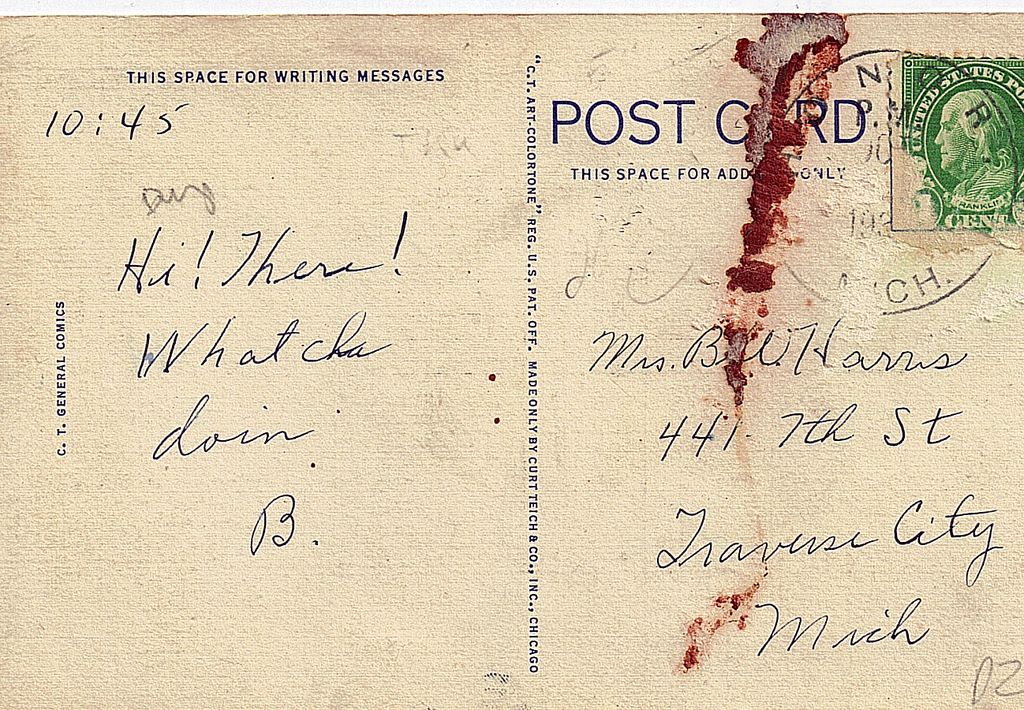 THIS SPACE FOR WRITING MESSAGES
10:45
Hi! There!
Whatcha
doin
B.
C. T. GENERAL COMICS
"C. T. ART-COLORTONE" REG. U.S. PAT. OFF. MADE ONLY BY CURT TEICH & CO., INC., CHICAGO
POST CARD
THIS SPACE FOR ADD ONLY
UNITED STATES PO
FRANKLIN
CENT
MICH.
Mrs. B. W. Harris
441 7th St
Traverse City
Mich